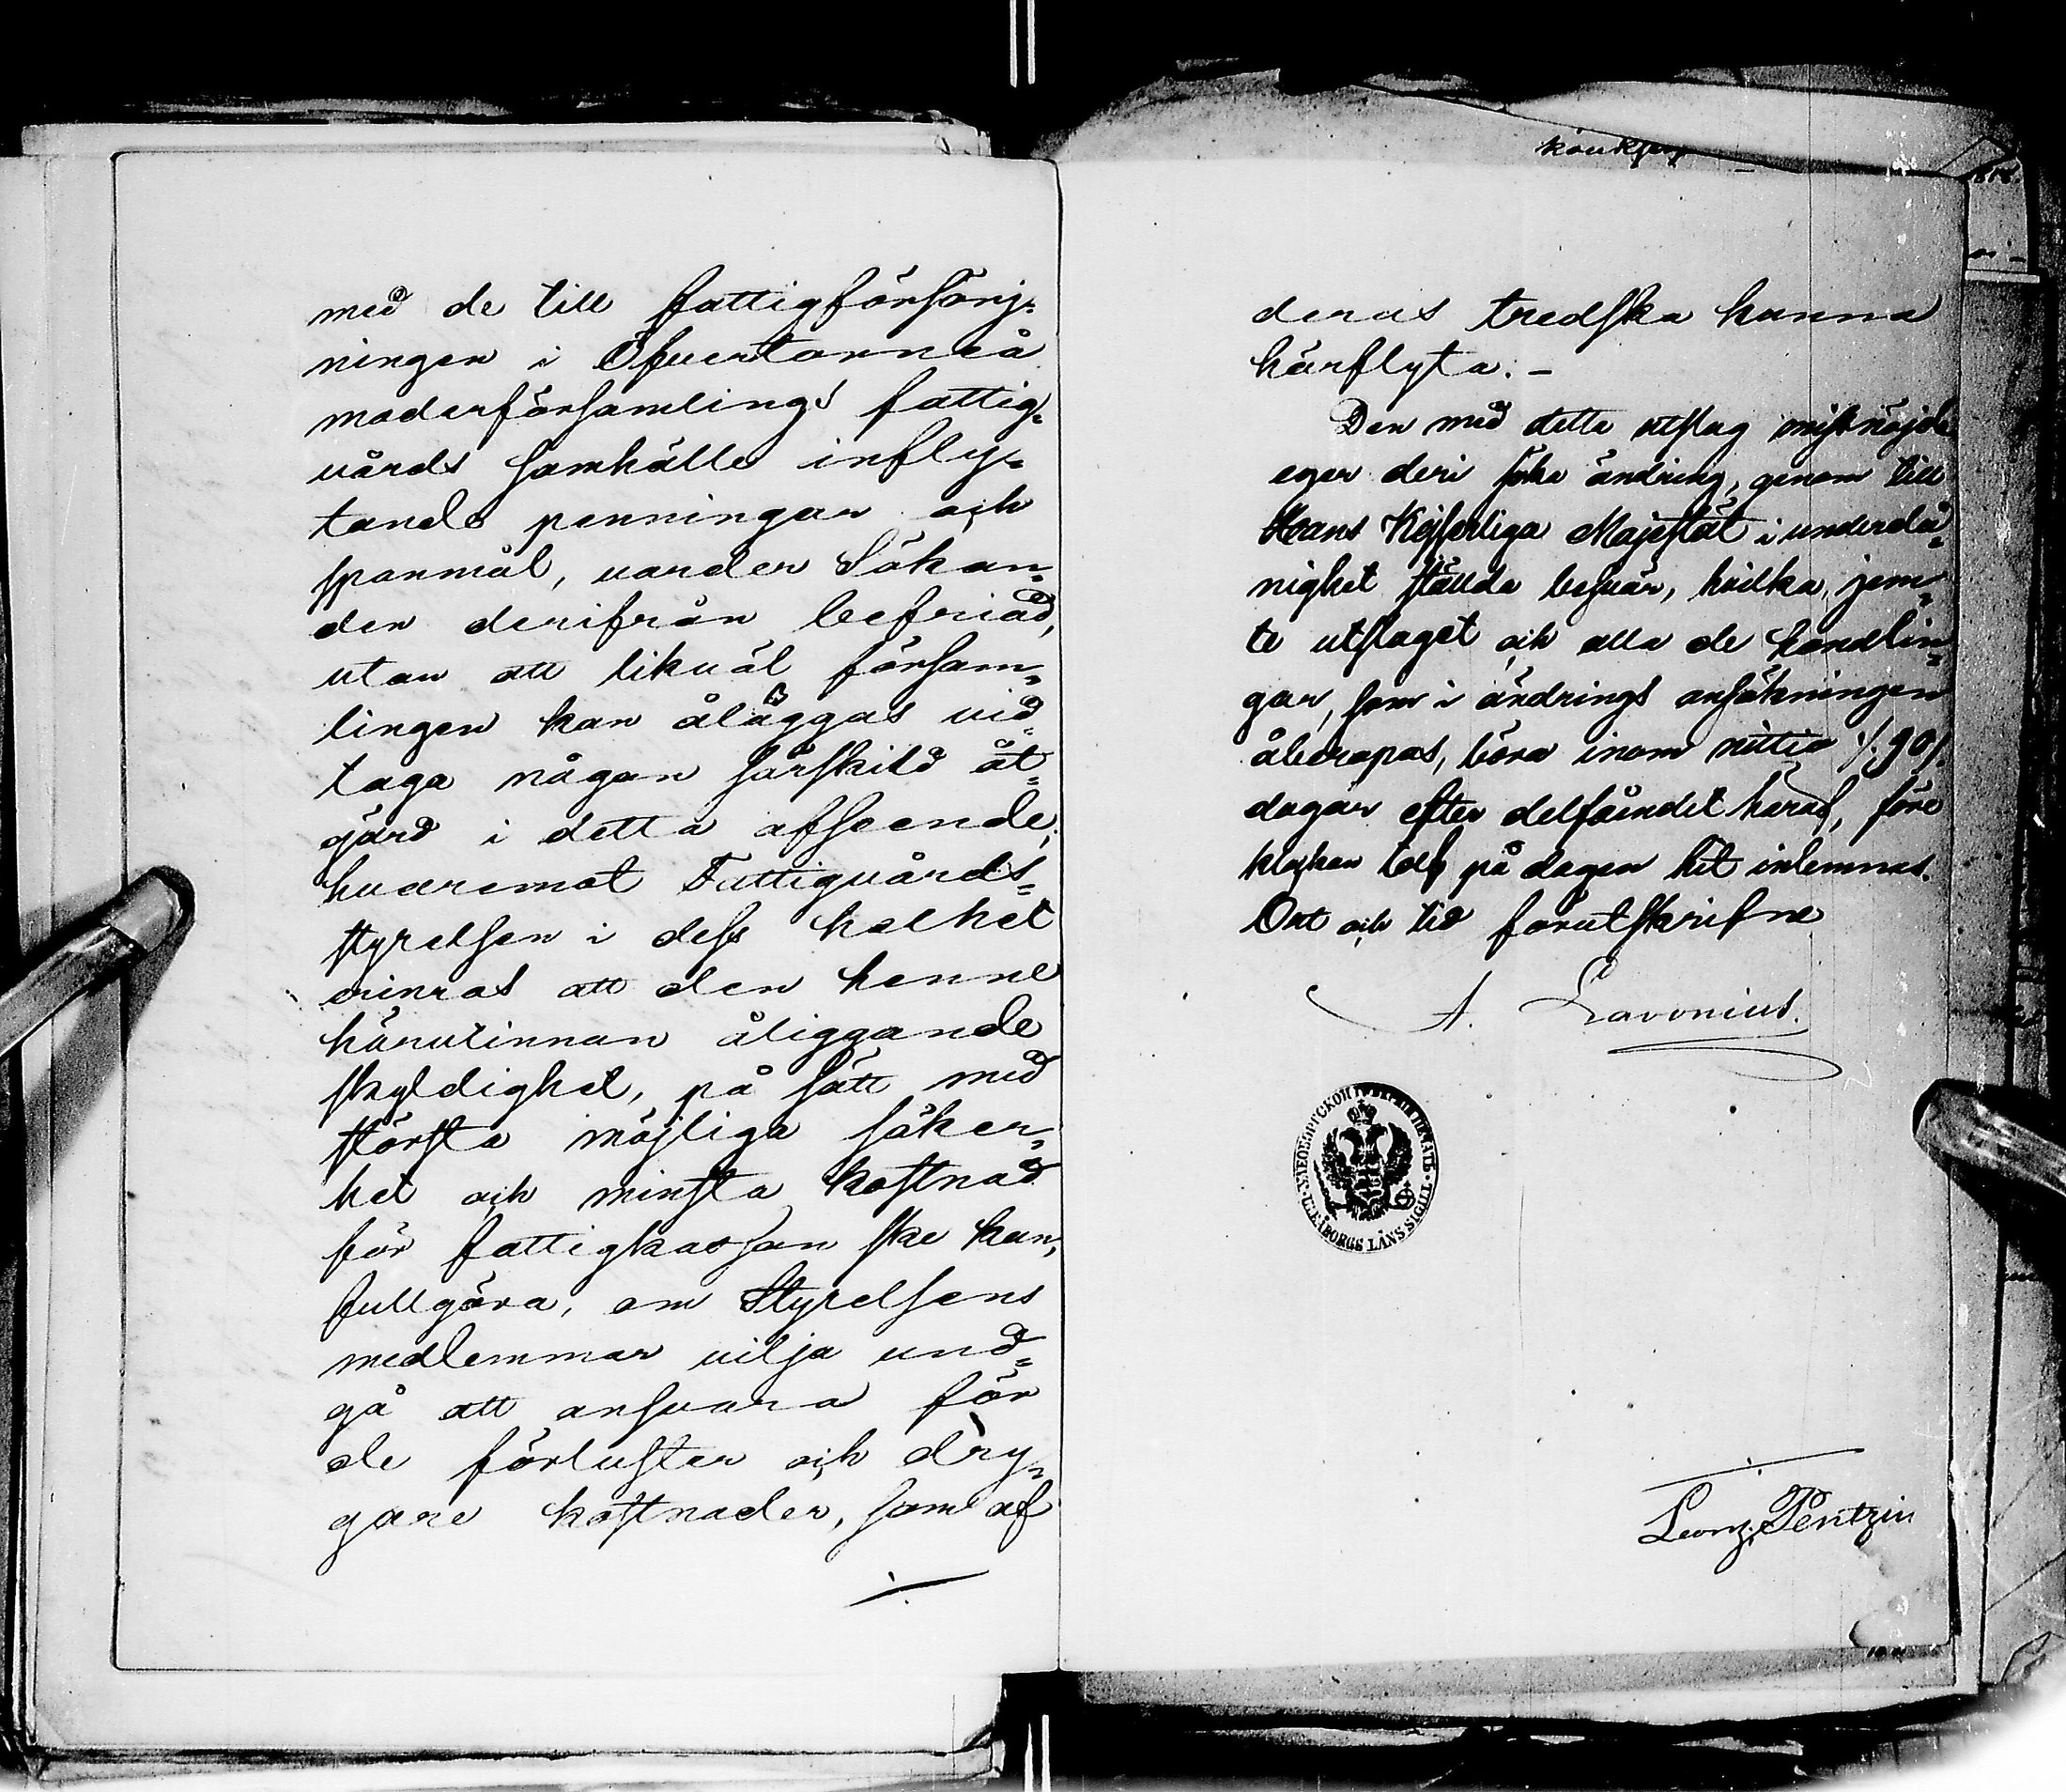 med de till fattigförsörj-
ningen i Öfvertorneå
moderförsamlings fattig-
vårds samhälle infly-
tande penningar och
spanmål, varder Sökan-
den derifrån befriad,
utan att likväl försam-
lingen kan åläggas vid-
taga någon särskild åt-
gärd i detta afseende;
hvaremot Fattigvårds-
styrelsen i dess helhet
erinras att den henne
härutinnan åliggande
skyldighet, på sätt med
största möjliga säker-
het och minsta kostnad
för fattigkassan ske kan,
fullgöra, om Styrelsens
medlemmar vilja und-
gå att ansvara för
de förluster och dry-
gare kostnader, som af
./.
deras tredska kunna
härflyta.-
Den med detta utslag missnöjde
eger deri söka ändring, genom till
Hans Kejserliga Majestät i underdå-
nighet ställda besvär, hvilka, jem-
te utslaget och alla de handlin-
gar, som i ändrings ansökningen
åberopas, böra inom nittio /.90/.
dagar efter delfåendet häraf, före
klockan tolf på dagen hit inlemnas.
Ort och tid förutskrifne
A. Lavonius.
УЛЕОБОРГСКОЙ ГУБЕРНІИ ПЕЧАТЬ · ULEÅBORGS LÄNS SIGILL ·
Pentzin